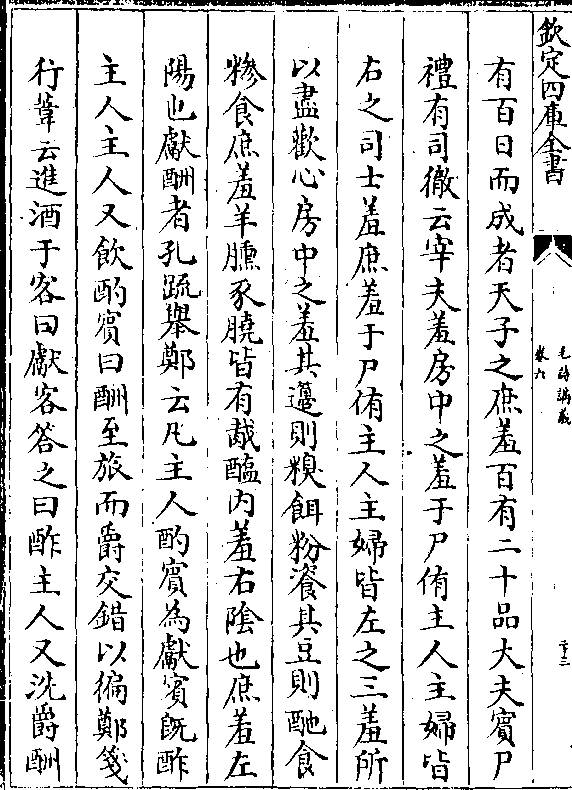 欽定四庫全書
毛詩講義
卷六
有百日而成者天子之庶羞百有二十品大夫賓尸
禮有司徹云宰夫羞房中之羞于尸侑主人主婦皆
右之司士羞庶羞于尸侑主人主婦皆左之三羞所
以盡歡心房中之羞其籩則糗餌粉餈其豆則酏食
糝食庶羞羊臐豕膮皆有胾醢內羞右陰也庶羞左
陽也獻酬者孔疏舉鄭云凡主人酌賓為獻賓既酢
主人主人又飲酌賓曰酬至旅而爵交錯以徧鄭箋
行葦云進酒于客曰獻客答之曰酢主人又洗爵酬